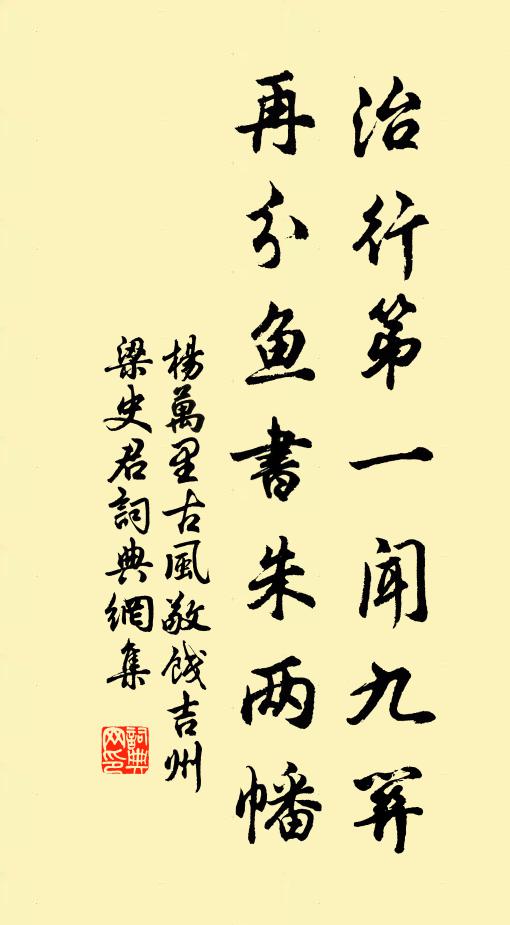 治行第一闻九关
再分鱼書朱两幡
楊萬里古風敬饯吉州
梁史君詞典網集
詞典网印